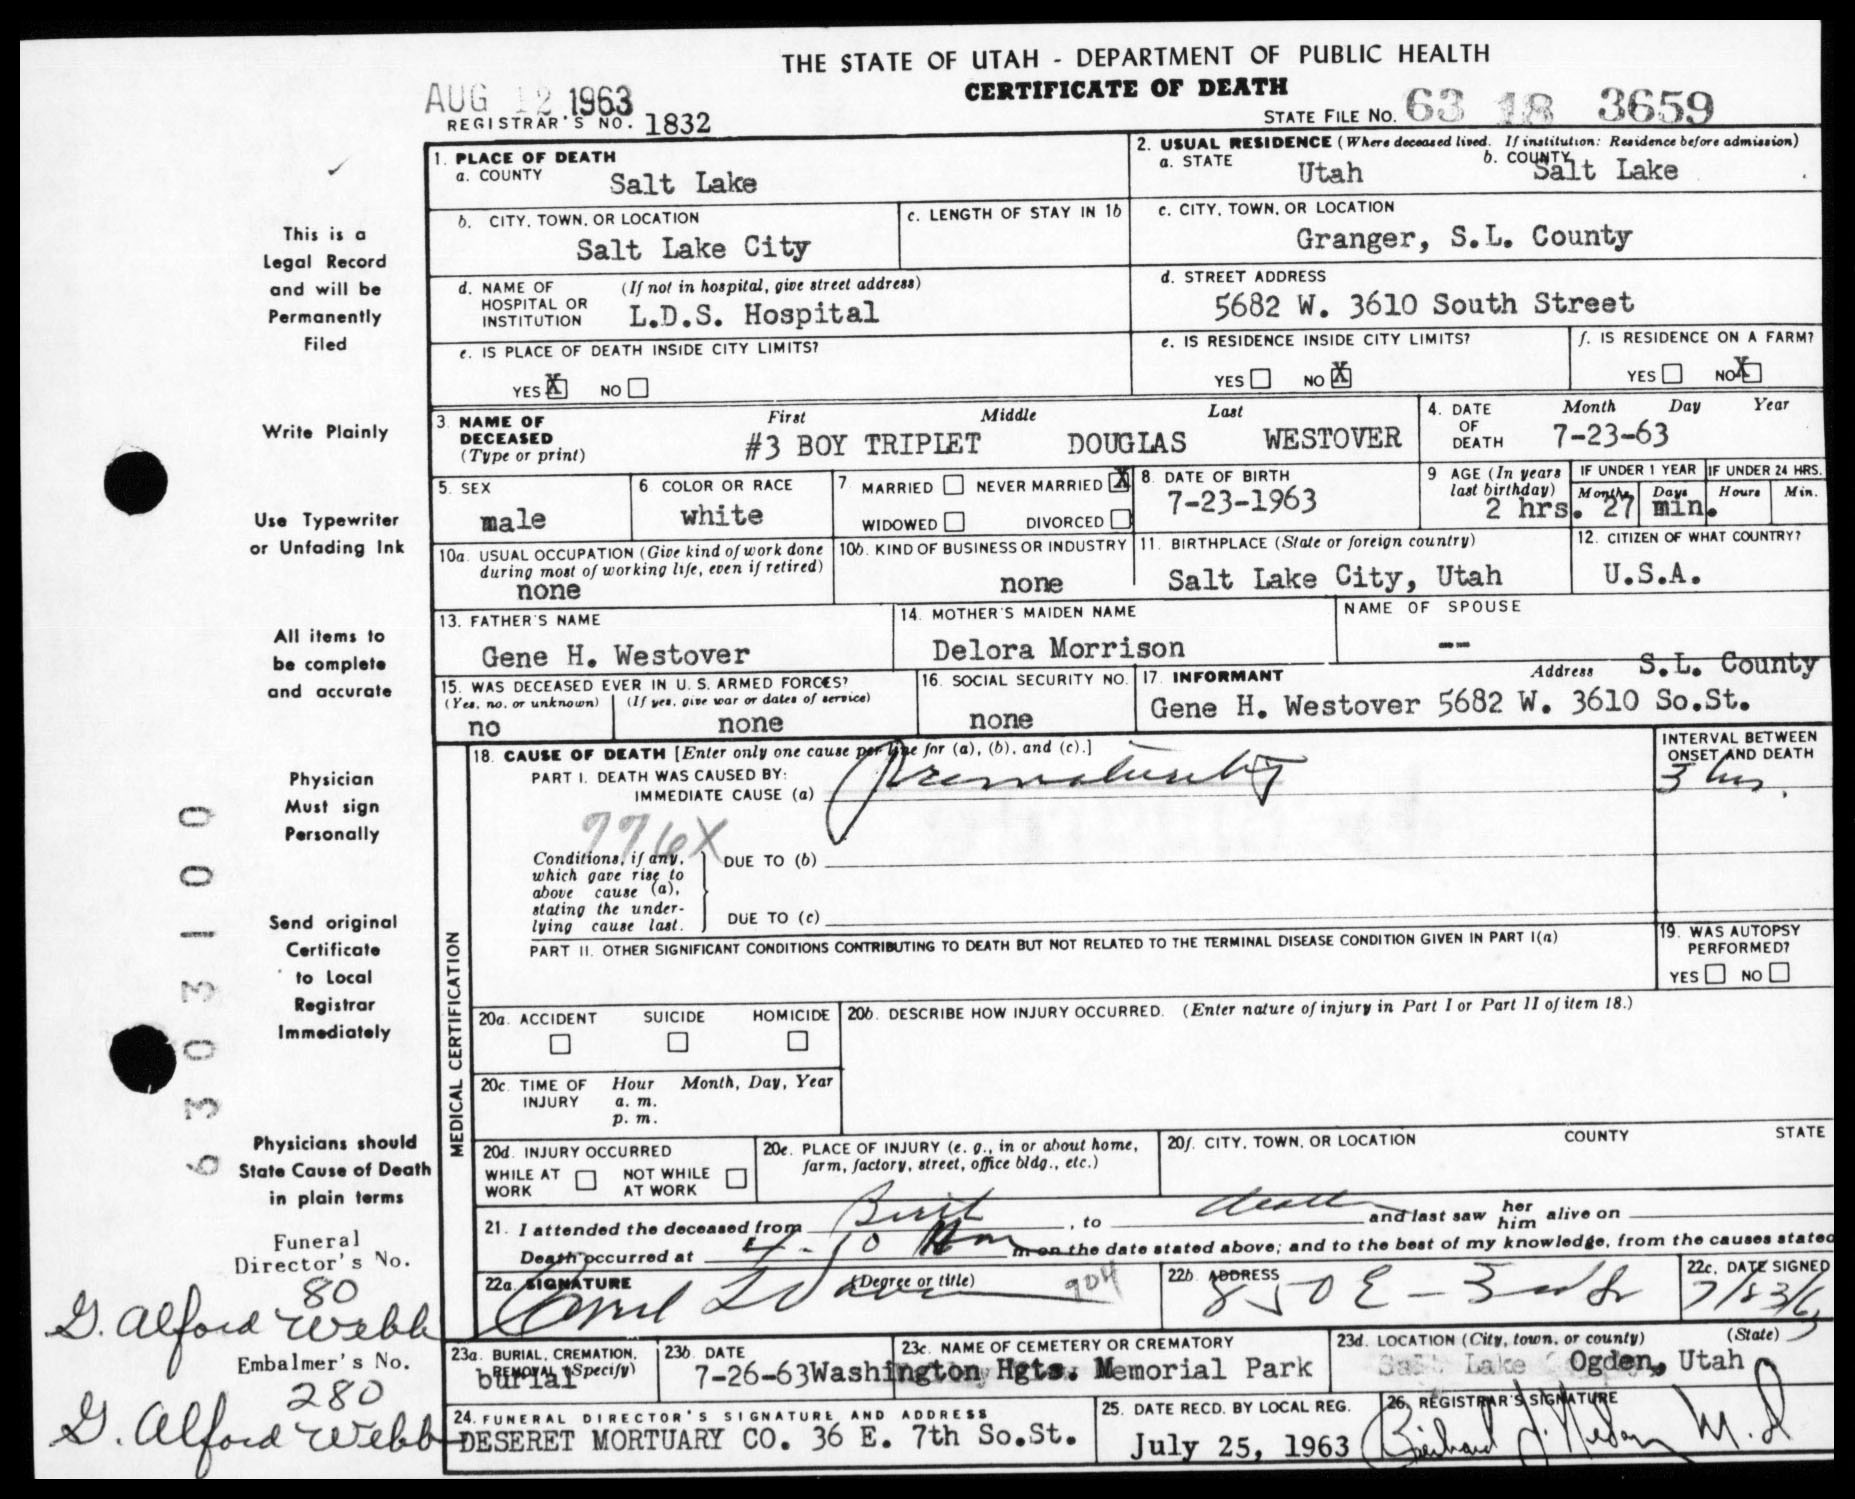 THE STATE OF UTAH - DEPARTMENT OF PUBLIC HEALTH
CERTIFICATE OF DEATH
AUG 12 1963
REGISTRAR'S NO. 1832
STATE FILE NO. 63 18 3659
1. PLACE OF DEATH
a. COUNTY Salt Lake
2. USUAL RESIDENCE (Where deceased lived. If institution: Residence before admission)
a. STATE Utah b. COUNTY Salt Lake
b. CITY, TOWN, OR LOCATION Salt Lake City
c. LENGTH OF STAY IN 1b
c. CITY, TOWN, OR LOCATION Granger, S.L. County
d. NAME OF HOSPITAL OR INSTITUTION (If not in hospital, give street address) L.D.S. Hospital
d. STREET ADDRESS 5682 W. 3610 South Street
e. IS PLACE OF DEATH INSIDE CITY LIMITS? YES X NO
e. IS RESIDENCE INSIDE CITY LIMITS? YES NO X
f. IS RESIDENCE ON A FARM? YES NO X
3. NAME OF DECEASED (Type or print) First Middle Last
#3 BOY TRIPLET DOUGLAS WESTOVER
4. DATE OF DEATH Month Day Year 7-23-63
5. SEX male
6. COLOR OR RACE white
7. MARRIED NEVER MARRIED X
WIDOWED DIVORCED
8. DATE OF BIRTH 7-23-1963
9 AGE (In years last birthday) IF UNDER 1 YEAR Months Days IF UNDER 24 HRS. Hours Min.
2 hrs. 27 min.
10a. USUAL OCCUPATION (Give kind of work done during most of working life, even if retired) none
10b. KIND OF BUSINESS OR INDUSTRY none
11. BIRTHPLACE (State or foreign country) Salt Lake City, Utah
12. CITIZEN OF WHAT COUNTRY? U.S.A.
13. FATHER'S NAME Gene H. Westover
14. MOTHER'S MAIDEN NAME Delora Morrison
NAME OF SPOUSE --
15. WAS DECEASED EVER IN U. S. ARMED FORCES?
(Yes, no, or unknown) no (If yes, give war or dates of service) none
16. SOCIAL SECURITY NO. none
17. INFORMANT Address S.L. County
Gene H. Westover 5682 W. 3610 So.St.
18. CAUSE OF DEATH [Enter only one cause per line for (a), (b), and (c).]
PART I. DEATH WAS CAUSED BY:
IMMEDIATE CAUSE (a) Prematurity
INTERVAL BETWEEN ONSET AND DEATH
3 hrs.
776X
Conditions, if any, which gave rise to above cause (a), stating the underlying cause last.
DUE TO (b)
DUE TO (c)
PART II. OTHER SIGNIFICANT CONDITIONS CONTRIBUTING TO DEATH BUT NOT RELATED TO THE TERMINAL DISEASE CONDITION GIVEN IN PART I(a)
19. WAS AUTOPSY PERFORMED?
YES NO
MEDICAL CERTIFICATION
20a. ACCIDENT SUICIDE HOMICIDE
20b. DESCRIBE HOW INJURY OCCURRED. (Enter nature of injury in Part I or Part II of item 18.)
20c. TIME OF INJURY Hour a. m. p. m. Month, Day, Year
20d. INJURY OCCURRED
WHILE AT WORK NOT WHILE AT WORK
20e. PLACE OF INJURY (e. g., in or about home, farm, factory, street, office bldg., etc.)
20f. CITY, TOWN, OR LOCATION COUNTY STATE
21. I attended the deceased from Birth, to death and last saw her him alive on
Death occurred at 4-10 m on the date stated above; and to the best of my knowledge, from the causes stated
22a. SIGNATURE (Degree or title) 904
22b. ADDRESS 850 E -
22c. DATE SIGNED
23a. BURIAL, CREMATION, REMOVAL (Specify) burial
23b. DATE 7-26-63
23c. NAME OF CEMETERY OR CREMATORY Washington Hgts. Memorial Park
23d. LOCATION (City, town, or county) (State) Ogden, Utah
24. FUNERAL DIRECTOR'S SIGNATURE AND ADDRESS
DESERET MORTUARY CO. 36 E. 7th So.St.
25. DATE RECD. BY LOCAL REG. July 25, 1963
26. REGISTRAR'S SIGNATURE
M.D
This is a
Legal Record
and will be
Permanently
Filed
Write Plainly
Use Typewriter
or Unfading Ink
All items to
be complete
and accurate
Physician
Must sign
Personally
Send original
Certificate
to Local
Registrar
Immediately
Physicians should
State Cause of Death
in plain terms
6303100
Funeral
Director's No.
80
G. Alford Webb
Embalmer's No.
280
G. Alford Webb